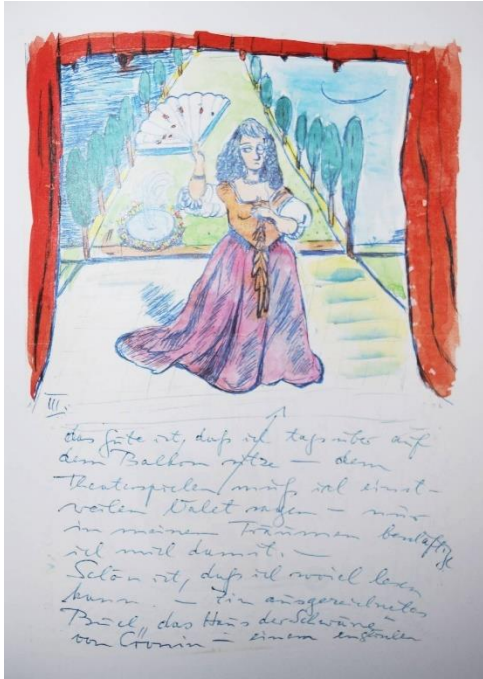 III.
das Gute ist, daß ich tagsüber auf
dem Balkon sitze – dem
Theaterspielen muß ich einst-
weilen Valet sagen – nur
in meinen Träumen beschäftige
ich mich damit. –
Schön ist, daß ich soviel lesen
kann. – Ein ausgezeichnetes
Buch „das Haus der Schwäne"
von Cronin – einem englischen